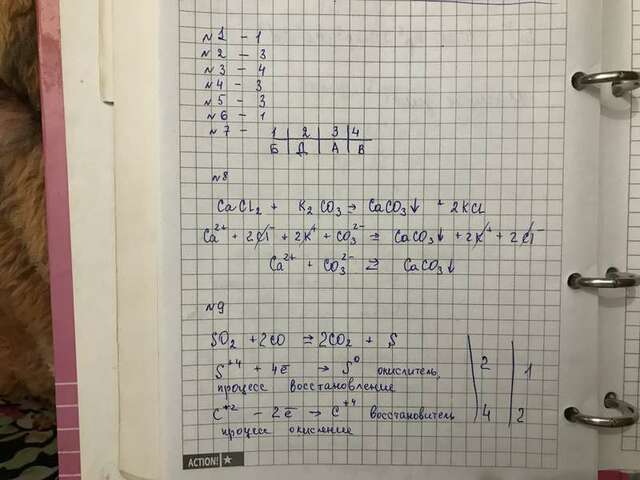 №1 - 1
№2 - 3
№3 - 4
№4 - 3
№5 - 3
№6 - 1
№7 - 1 | 2 | 3 | 4
Б | Д | А | В
№8
CaCl₂ + K₂CO₃ ⇒ CaCO₃↓ + 2KCl
Ca²⁺ + 2Cl⁻ + 2K⁺ + CO₃²⁻ ⇄ CaCO₃↓ + 2K⁺ + 2Cl⁻
Ca²⁺ + CO₃²⁻ ⇄ CaCO₃↓
№9
SO₂ + 2CO ⇒ 2CO₂ + S
S⁺⁴ + 4e̅ → S⁰ окислитель, | 2 | 1
процесс восстановление
C⁺² - 2e̅ → C⁺⁴ восстановитель | 4 | 2
процесс окисление
ACTION!